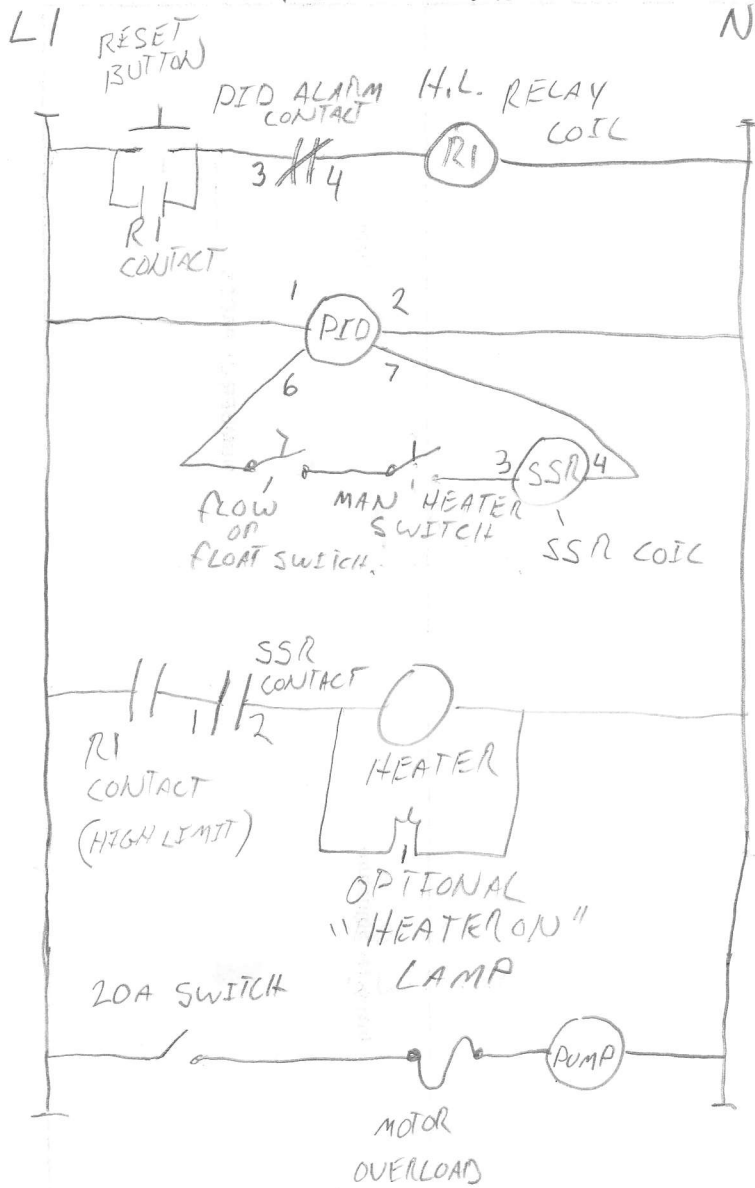 L1
N
RESET
BUTTON
PID ALARM
CONTACT
H.L. RELAY
COIL
3
4
R1
R1
CONTACT
1
2
PID
6
7
3
SSR
4
FLOW
OR
FLOAT SWITCH.
MAN HEATER
SWITCH
SSR COIL
SSR
CONTACT
1
2
R1
CONTACT
(HIGH LIMIT)
HEATER
OPTIONAL
"HEATER ON"
LAMP
20A SWITCH
PUMP
MOTOR
OVERLOAD